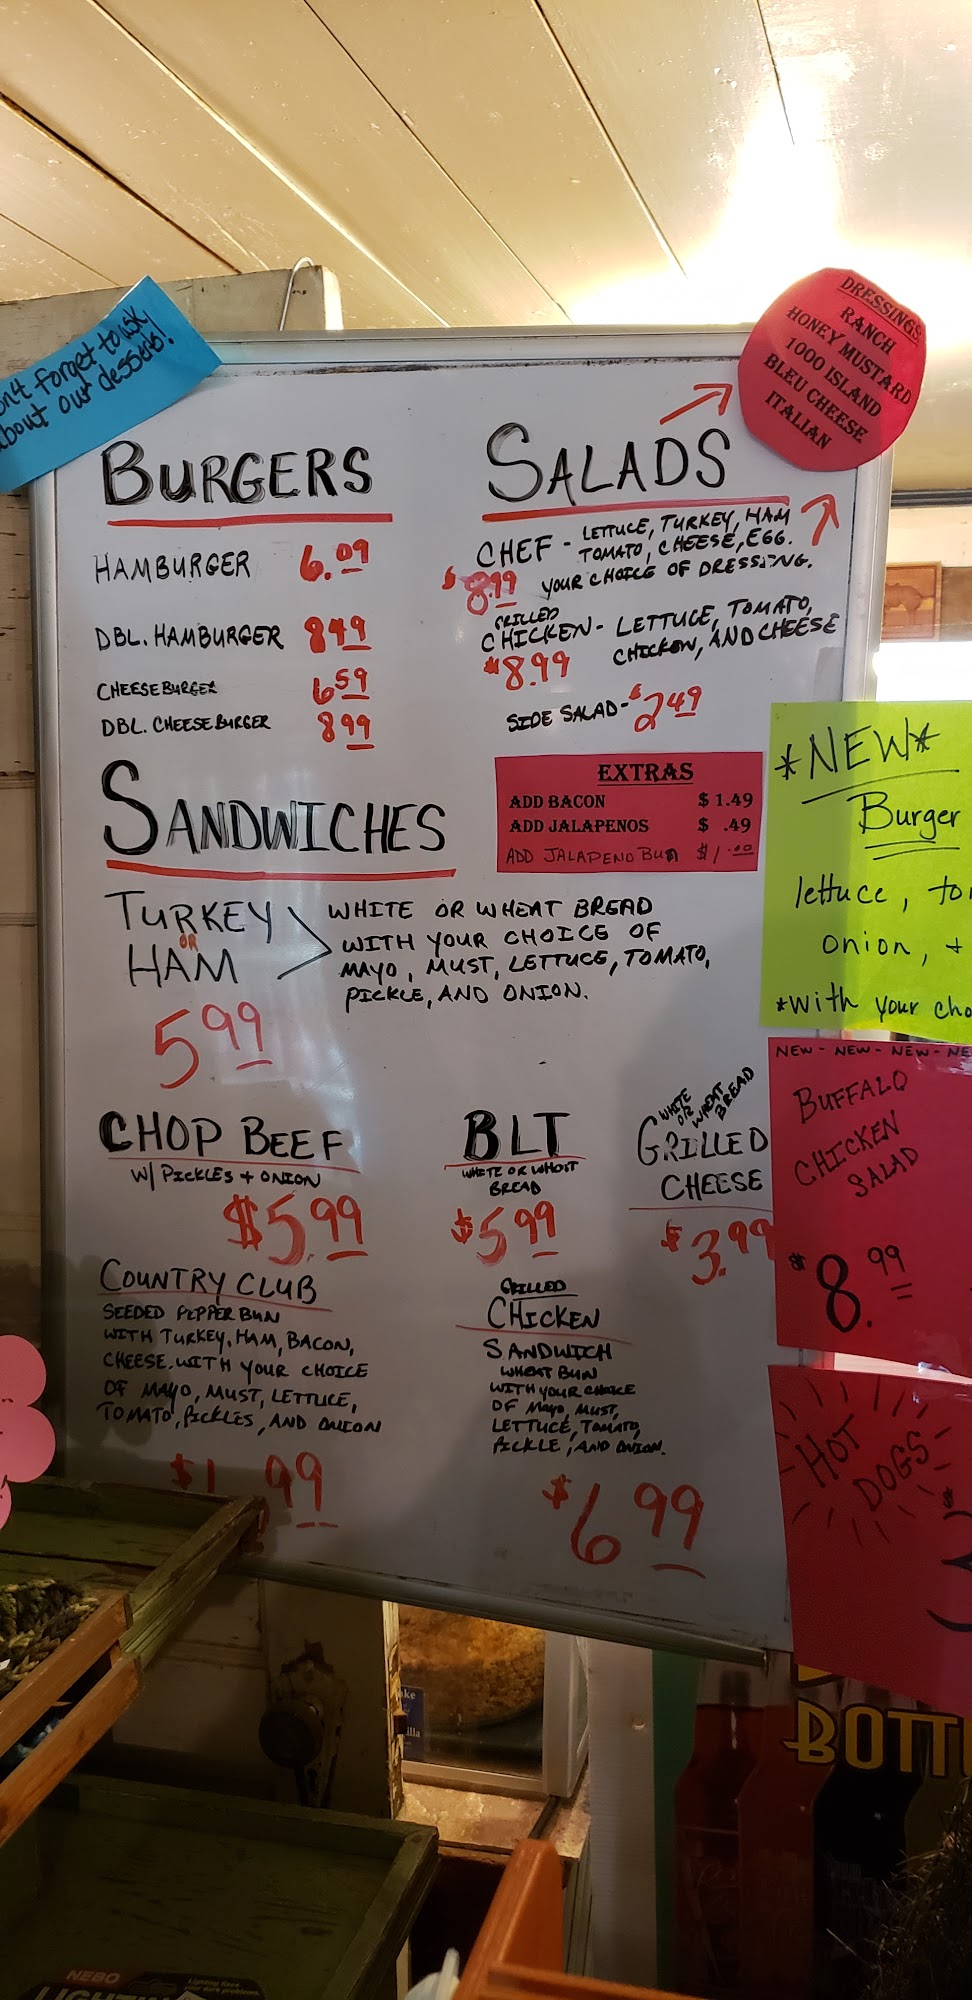 Don't forget to ask
about our desserts!
DRESSINGS
RANCH
HONEY MUSTARD
1000 ISLAND
BLEU CHEESE
ITALIAN
BURGERS
HAMBURGER 6.09
DBL. HAMBURGER 849
CHEESEBURGER 659
DBL. CHEESEBURGER 899
SALADS
CHEF - LETTUCE, TURKEY, HAM
TOMATO, CHEESE, EGG.
$8.99 YOUR CHOICE OF DRESSING.
GRILLED
CHICKEN - LETTUCE, TOMATO,
$8.99 CHICKEN, AND CHEESE
SIDE SALAD - $2.49
EXTRAS
ADD BACON $ 1.49
ADD JALAPENOS $ .49
ADD JALAPENO BUN $1.00
SANDWICHES
TURKEY
OR
HAM
5.99
WHITE OR WHEAT BREAD
WITH YOUR CHOICE OF
MAYO, MUST, LETTUCE, TOMATO,
PICKLE, AND ONION.
CHOP BEEF
W/ PICKLES + ONION
$5.99
BLT
WHITE OR WHEAT
BREAD
$5.99
WHITE
OR
WHEAT BREAD
GRILLED
CHEESE
$3.99
COUNTRY CLUB
SEEDED PEPPER BUN
WITH TURKEY, HAM, BACON,
CHEESE. WITH YOUR CHOICE
OF MAYO, MUST, LETTUCE,
TOMATO, PICKLES, AND ONION
99
GRILLED
CHICKEN
SANDWICH
WHEAT BUN
WITH YOUR CHOICE
OF MAYO, MUST,
LETTUCE, TOMATO,
PICKLE, AND ONION.
$6.99
*NEW*
Burger
lettuce, to
onion, +
*with your cho
NEW - NEW - NEW - NE
BUFFALO
CHICKEN
SALAD
$8.99
HOT
DOGS
$
BOTT
NEBO
Lighting fixes